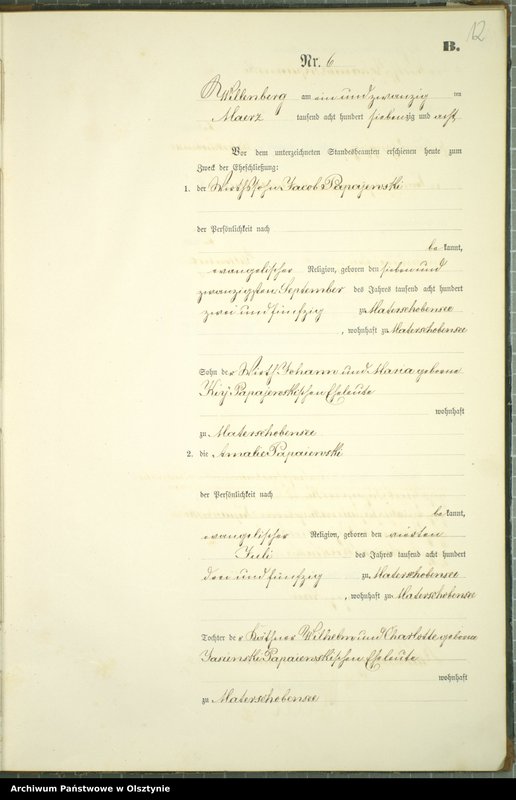 12
B.
Nr. 6
Willenberg am ein und zwanzig ten
Maerz tausend acht hundert siebenzig und acht
Vor dem unterzeichneten Standesbeamten erschienen heute zum
Zweck der Eheschließung:
1. der Wirthssohn Jacob Papajewski
der Persönlichkeit nach
be kannt,
evangelischer Religion, geboren den sieben und
zwanzigsten September des Jahres tausend acht hundert
zwei und fünfzig zu Materschobensee
, wohnhaft zu Materschobensee
Sohn der Wirth Johann und Maria geborne
Papajewskischen Eheleute
wohnhaft
zu Materschobensee
2. die Amalie Papaiewski
der Persönlichkeit nach
be kannt,
evangelischer Religion, geboren den vierten
Juli des Jahres tausend acht hundert
drei und fünfzig zu Materschobensee
, wohnhaft zu Materschobensee
Tochter der Käthner Wilhelm und Charlotte geborne
Jasienski Papaiewskischen Eheleute
wohnhaft
zu Materschobensee
Archiwum Państwowe w Olsztynie